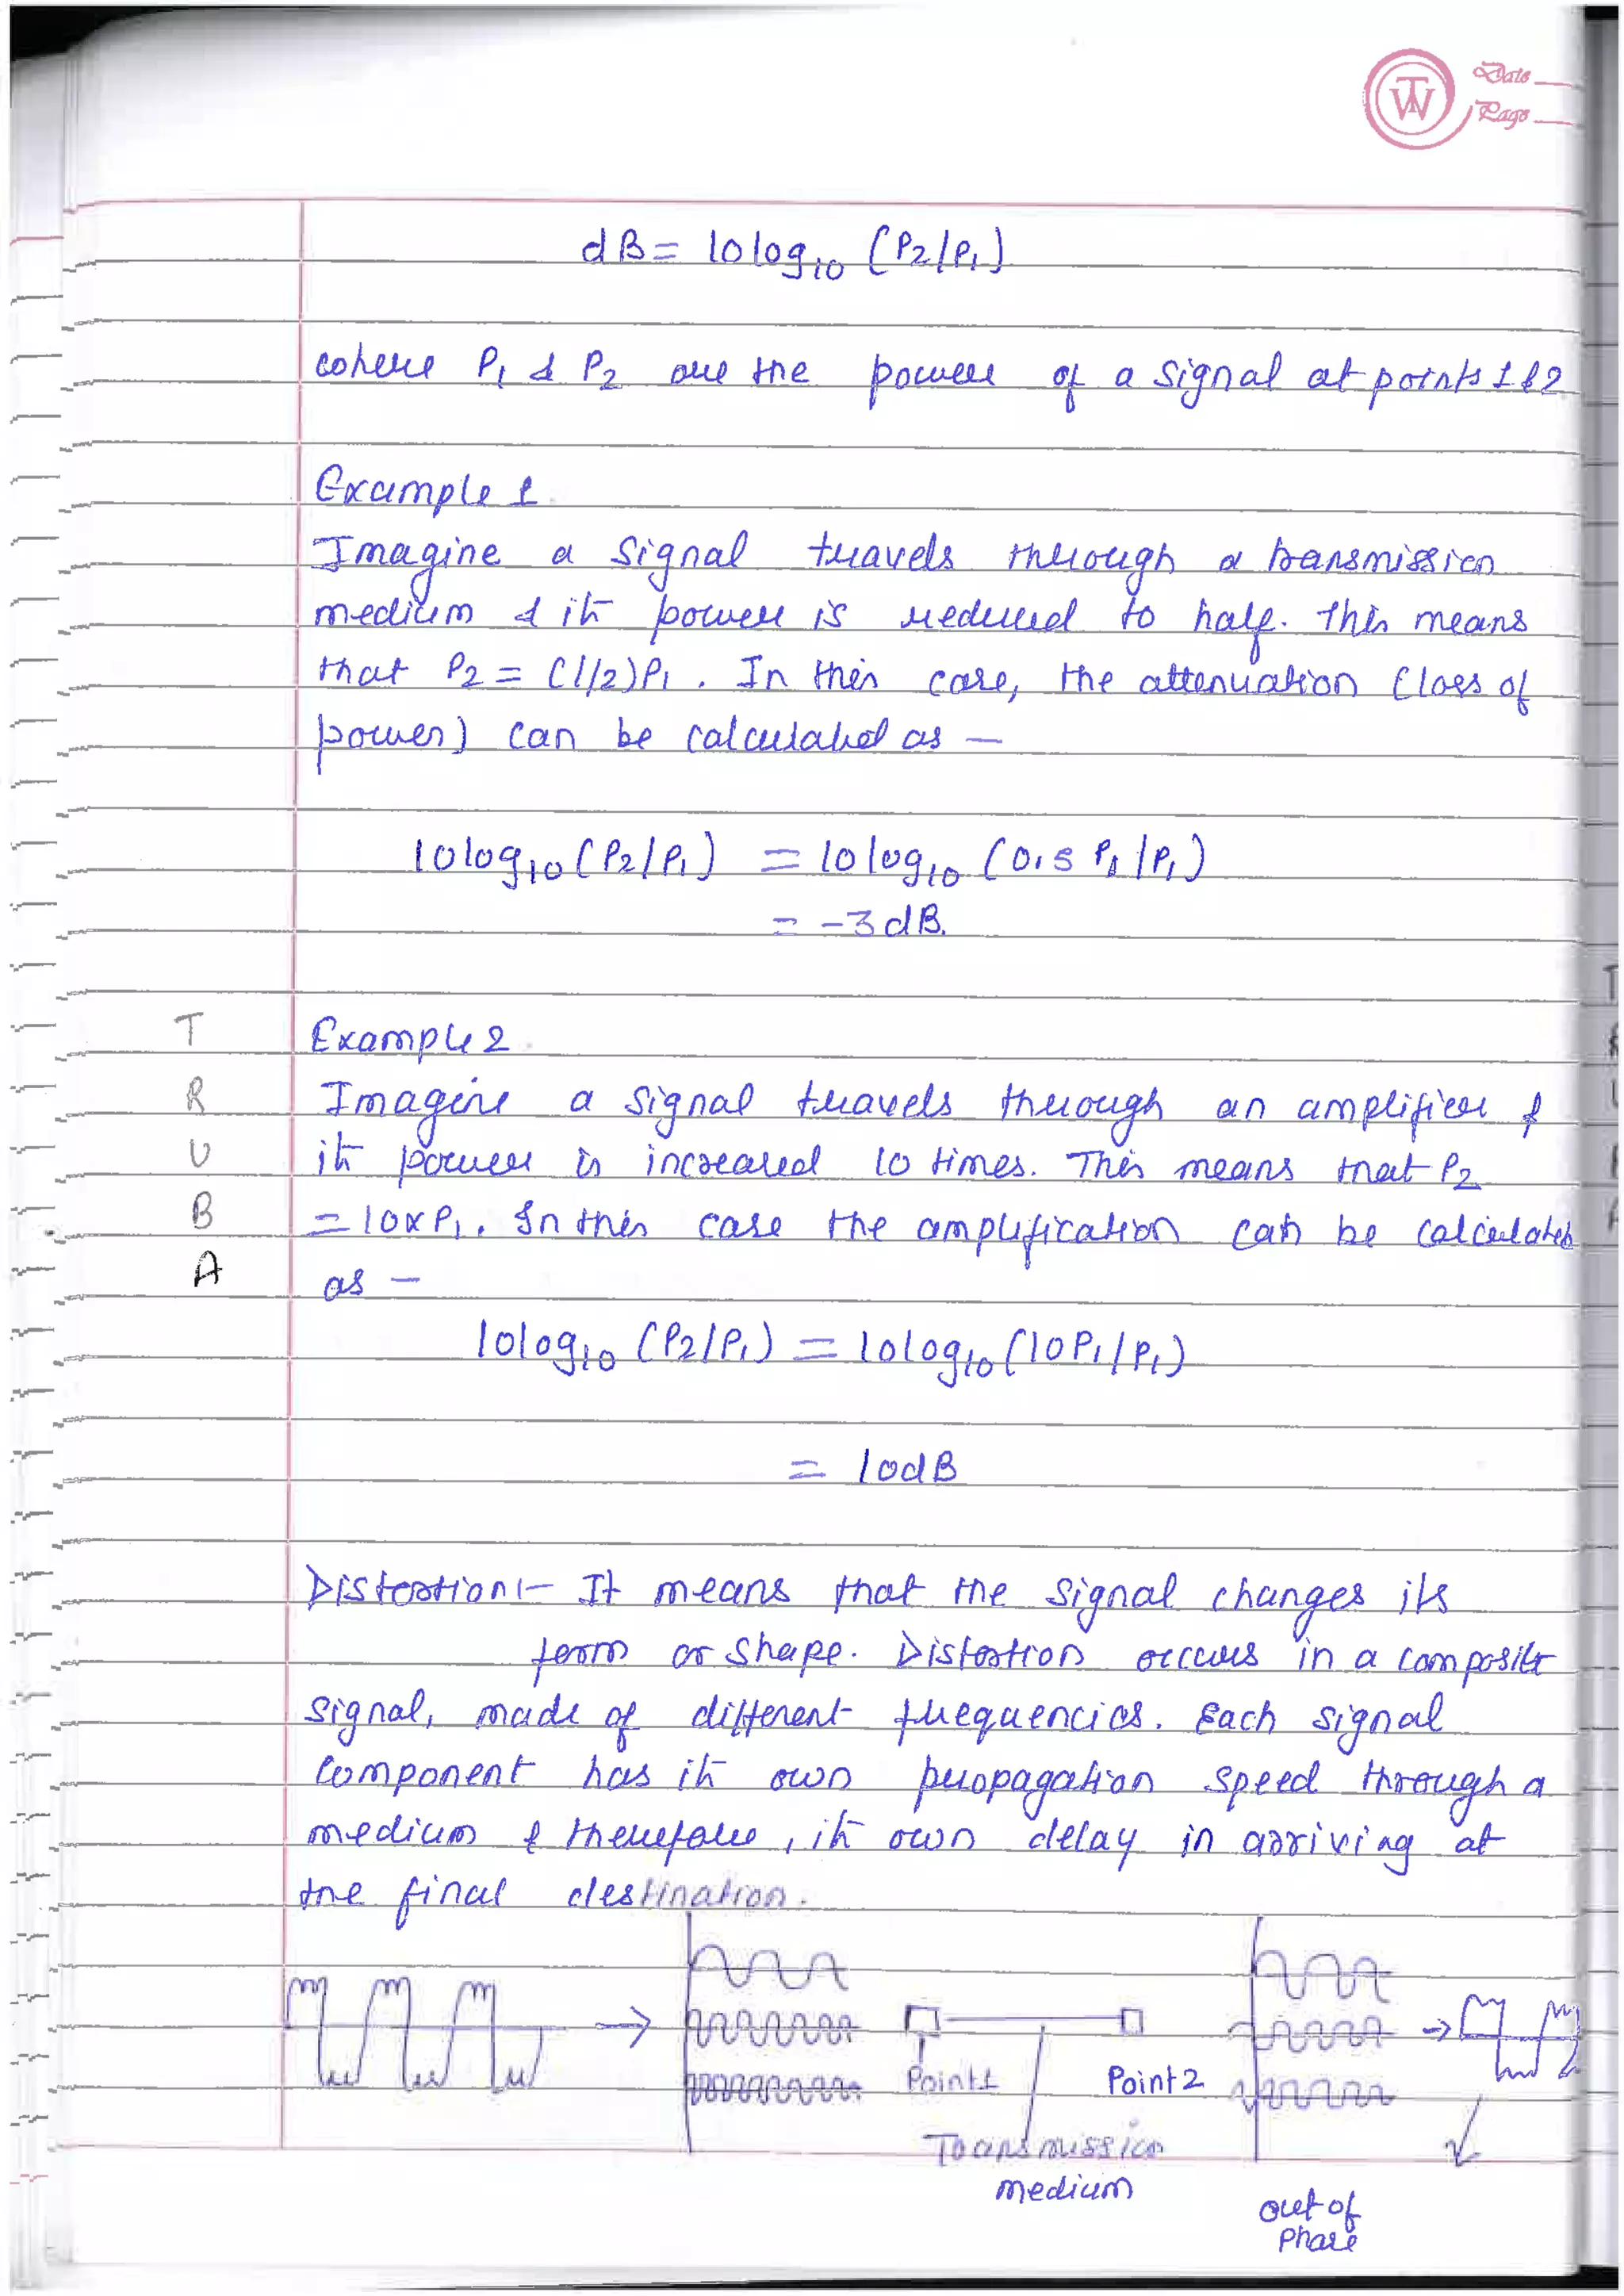 Date
Page
TW
dB = 10 log10 (P2/P1)
where P1 & P2 are the power of a signal at points 1 & 2
Example 1
Imagine a signal travels through a transmission
medium & its power is reduced to half. This means
that P2 = (1/2)P1. In this case, the attenuation (loss of
power) can be calculated as —
10log10 (P2/P1) = 10 log10 (0.5 P1/P1)
= -3dB.
Example 2
Imagine a signal travels through an amplifier &
its power is increased 10 times. This means that P2
= 10xP1. In this case the amplification can be calculated
as —
10log10 (P2/P1) = 10log10 (10P1/P1)
= 10dB
T
R
U
B
A
Distortion :- It means that the signal changes its
form or shape. Distortion occurs in a composite
signal, made of different frequencies. Each signal
component has its own propagation speed through a
medium & therefore, its own delay in arriving at
the final destination.
Point 1
Point 2
Transmission
medium
out of
Phase